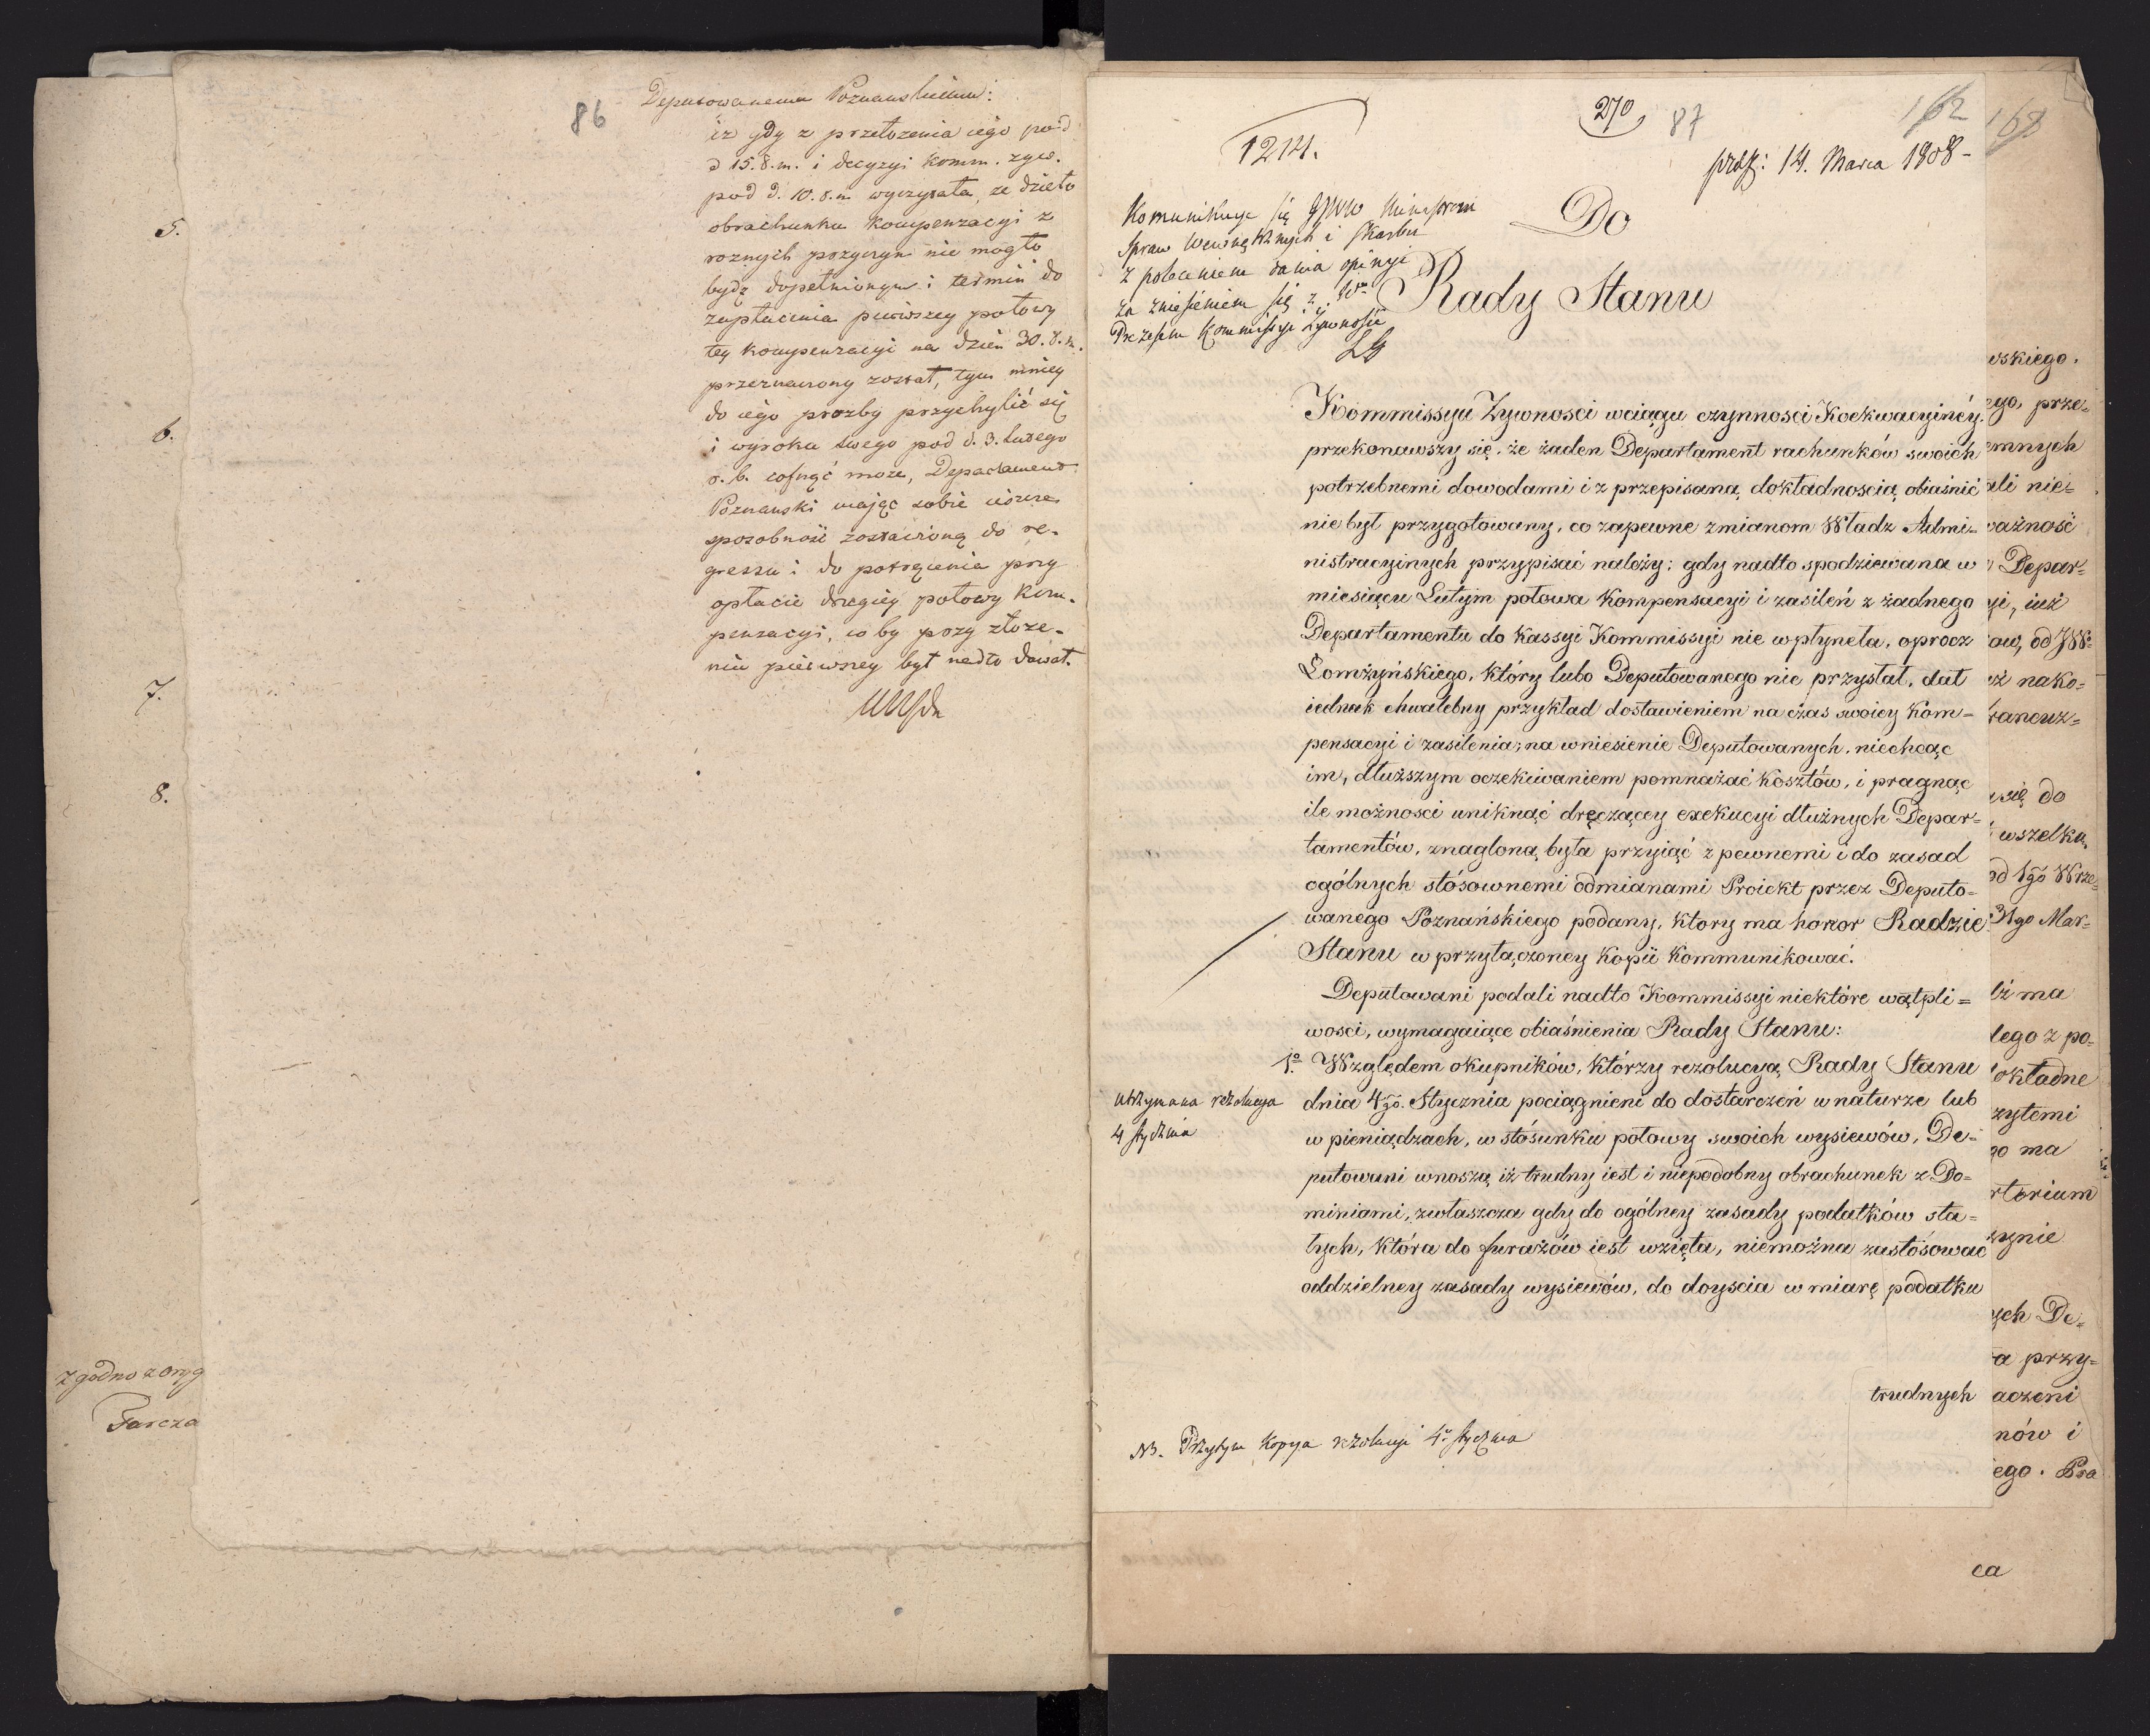 86
Deputowanemu Poznanskiemu:
iz gdy z przełozenia iego pod
d 15. b. m. i decyzyi Komm. zyw.
pod d. 10. b. m wyczytała, ze dzieło
obrachunku kompenzacyi z
roznych przyczyn nie mogło
bydz dopełnionym i termin do
zapłacenia pierwszey połowy
tey kompenzacyi na dzień 30. b. m.
przeznaczony został, tym mniey
do iego prozby przychylić się
i wyroku swego pod d. 3. lutego
r. b. cofnąć moze, Departament
Poznanski maiąc sobie ieszcze
sposobność zostawioną do re-
gressu i do potrącenia przy
opłacie drugiey połowy kom-
penzacyi, co by przy złoze-
niu pierwszey był nadto dawał.
5.
6.
7.
8.
Zgodno z oryg
Tarcza
270
87
162
168
1214.
14. Marca 1808-
Komunikuje się JJWW Ministrom
Spraw Wewnętrznych i Skarbu
z poleceniem dania opinyi
za zniesieniem się z JW
Prezesem Kommissyi Żywności
Do
Rady Stanu
Kommissya Żywnosci wciągu czynnosci Koekwacyinéy.
przekonawszy się, że żaden Departament rachunków swoich
potrzebnemi dowodami i z przepisaną dokładnoscią obiaśnić
nie był przygotowany, co zapewne zmianom Władz Admi-
nistracyinych przypisać należy; gdy nadto spodziewana w
miesiącu Lutym połowa Kompensacyi i zasileń z żadnego
Departamentu do Kassyi Kommissyi nie wpłyneła, oprocz
Łomżyńskiego, który lubo Deputowanego nie przysłał, dał
iednak chwalebny przykład dostawieniem na czas swoiey Kom-
pensacyi i zasilenia; na wniesienie Deputowanych, niechcąc
im, dłuższym oczekiwaniem pomnażać kosztów, i pragnąc
ile możnosci uniknąć dręczącey exekucyi dłużnych Depar-
tamentów, znagloną była przyiąć z pewnemi i do zasad
ogólnych stósownemi odmianami Proiekt przez Deputo-
wanego Poznańskiego podany, ktory ma honor Radzie
Stanu w przyłączoney Kopii Kommunikować.
Deputowani podali nadto Kommissyi niektóre wątpli=
wosci, wymagaiące obiaśnienia Rady Stanu:
1o. Względem okupników, którzy rezolucyą Rady Stanu
dnia 4go. Stycznia pociągnieni do dostarczeń w naturze lub
w pieniądzach, w stósunku połowy swoich wysiewów, De-
putowani wnoszą iż trudny iest i niepodobny obrachunek z Do=
miniami, zwłaszcza gdy do ogólney zasady podatków sta=
łych, która do furażów iest wzięta, niemożna zastósować
oddzielney zasady wysiewów, do doyscia w miarę podatku
trudnych
utrzymana rezolucya
4 stycznia
NB. Przytym Kopya rezolucyi 4o stycznia
wskiego.
ego, prze-
emnych
ali nie=
ważność
Depar=
yi, iuż
aw, od JW
nako=
rancuz=
się do
wszelką
od 1go Wrze=
31go Mar-
ma
łego z po-
okładne
zytemi
go ma
rtorium
znie
ych De-
a przy=
aczeni
nów i
ego. Pra
ca